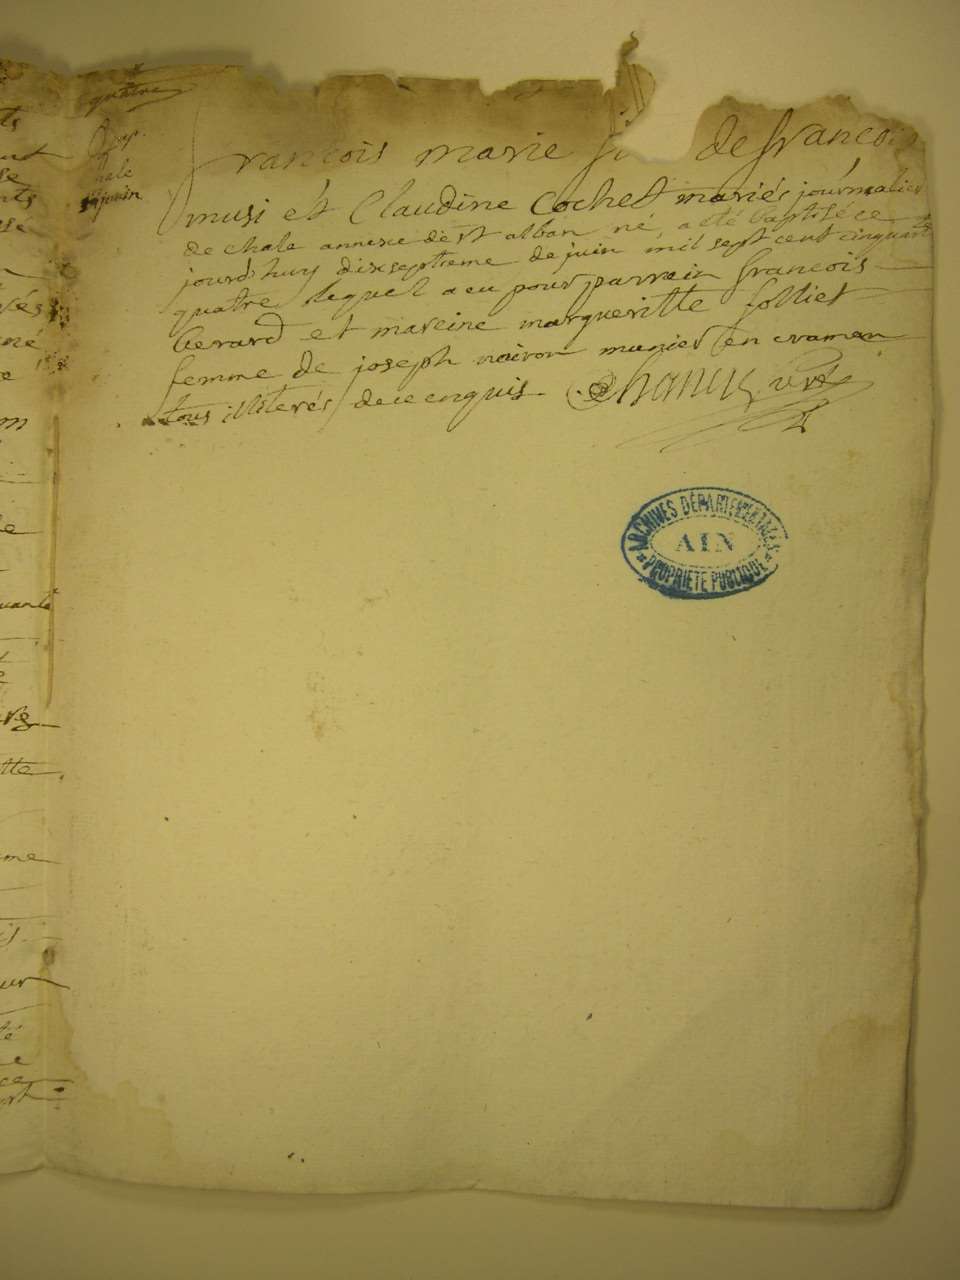 quatre
Bap.
chale
17 juin
francois marie fi de francois
musi et Claudine Cochet mariés journalier
de chale annexe de st alban né, a eté baptisé ce
jourd'huy dixseptieme de juin mil sept cent cinquante
quatre lequel a eu pour parrein francois
berard et mareine margueritte folliet
femme de joseph munier en craman
tous illiterés de ce enquis.
ARCHIVES DÉPARTEMENTALES
AIN
PROPRIÉTÉ PUBLIQUE